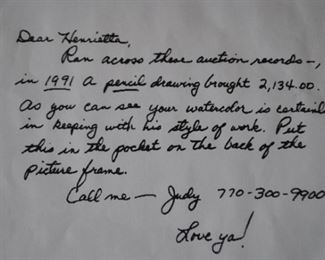 Dear Henrietta,
Ran across these auction records –,
in 1991 A pencil drawing brought 2,134.00.
As you can see your watercolor is certainl
in keeping with his style of work. Put
this in the pocket on the back of the
picture frame.
Call me — Judy 770-300-9900
Love ya!